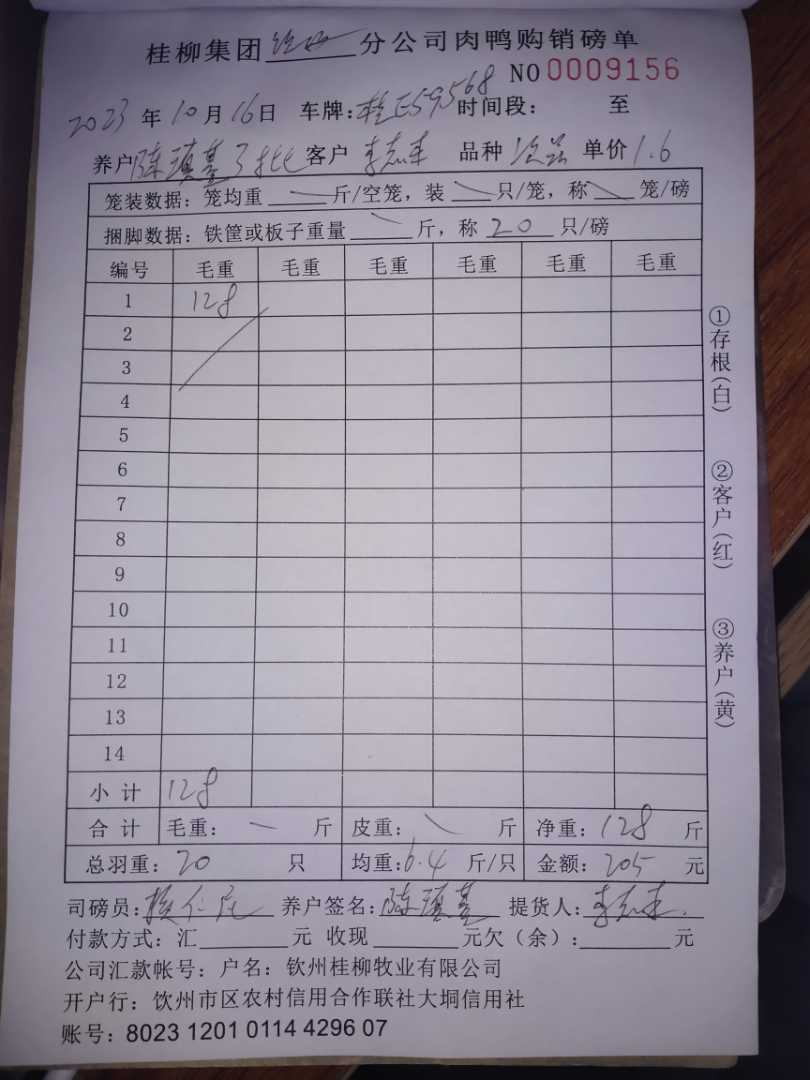 桂柳集团 分公司肉鸭购销磅单
NO 0009156
2023 年 10 月 16 日 车牌: 桂E59568 时间段: 至
养户 陈慎基 客户 李志丰 品种 单价 1.6
笼装数据: 笼均重 斤/空笼, 装 只/笼, 称 笼/磅
捆脚数据: 铁筐或板子重量 斤, 称 20 只/磅
编号 毛重 毛重 毛重 毛重 毛重 毛重
1 128
2
3
4
5
6
7
8
9
10
11
12
13
14
小计 128
合计 毛重: 斤 皮重: 斤 净重: 128 斤
总羽重: 20 只 均重: 6.4 斤/只 金额: 205 元
司磅员: 养户签名: 提货人:
付款方式: 汇 元 收现 元欠(余): 元
公司汇款帐号: 户名: 钦州桂柳牧业有限公司
开户行: 饮州市区农村信用合作联社大垌信用社
账号: 8023 1201 0114 4296 07
①存根(白)
②客户(红)
③养户(黄)